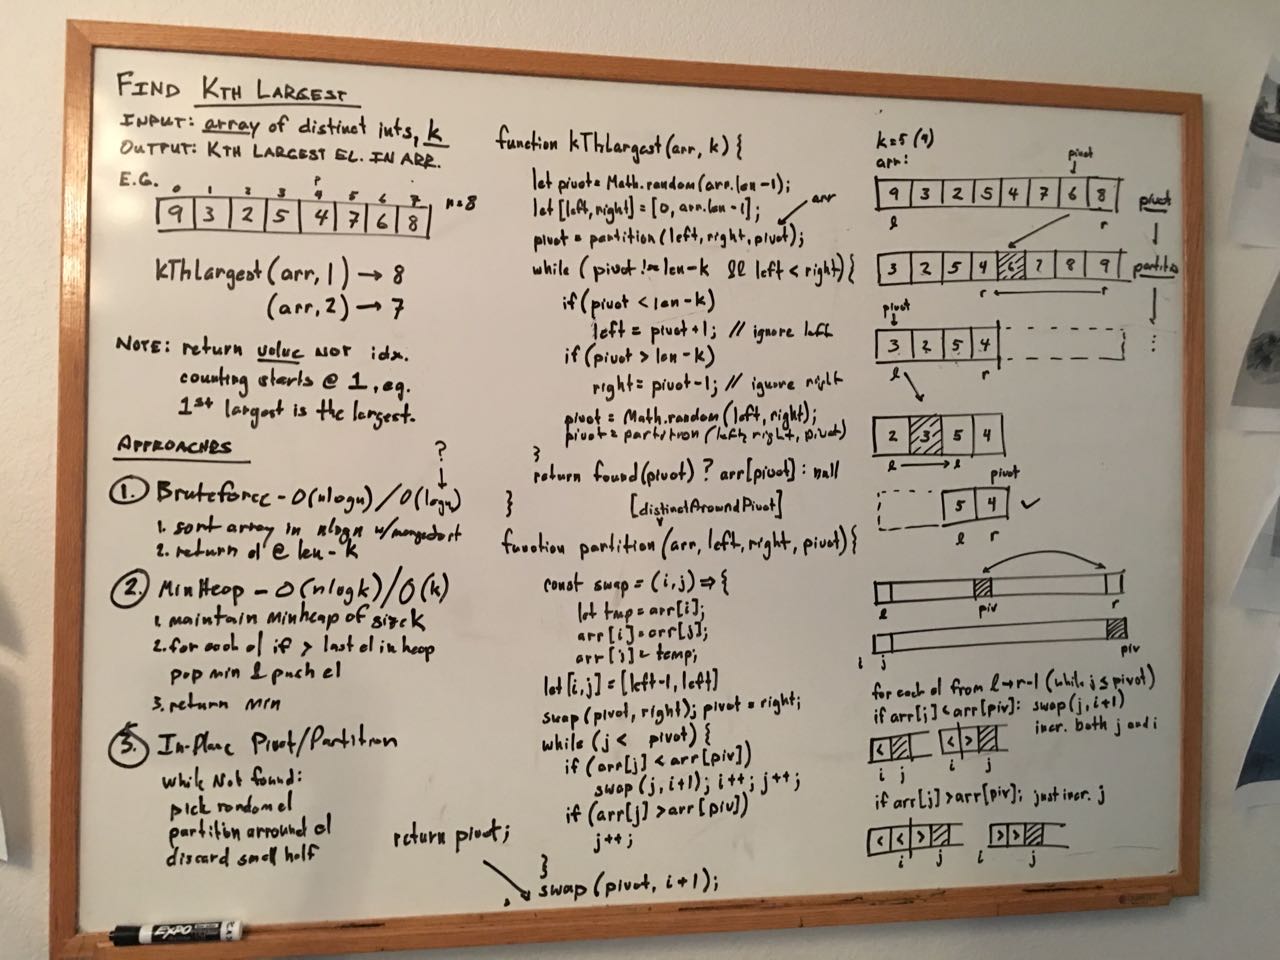 FIND KTH LARGEST
INPUT: array of distinct ints, k
OUTPUT: KTH LARGEST EL. IN ARR.
E.G.
0 1 2 3 4 5 6 7
9 3 2 5 4 7 6 8 n=8
kThLargest(arr, 1) → 8
(arr, 2) → 7
NOTE: return value NOT idx.
counting starts @ 1, eg.
1st largest is the largest.
APPROACHES
?
1. Bruteforce - O(nlogn) / O(logn)
1. sort array in nlogn w/mergesort
2. return el @ len-k
2. MinHeap - O(nlogk) / O(k)
1. maintain minheap of size k
2. for each el if > last el in heap
pop min & push el
3. return min
3. In-Place Pivot/Partition
while Not found:
pick random el
partition arround el
discard small half
function kThLargest(arr, k) {
let pivot = Math.random(arr.len-1);
let [left, right] = [0, arr.len-1];
arr
pivot = partition(left, right, pivot);
while (pivot != len-k && left < right) {
if (pivot < len-k)
left = pivot+1; // ignore left
if (pivot > len-k)
right = pivot-1; // ignore right
pivot = Math.random(left, right);
pivot = partition(left, right, pivot)
}
return found(pivot) ? arr[pivot] : null
}
[distinctAroundPivot]
function partition(arr, left, right, pivot) {
const swap = (i, j) => {
let tmp = arr[i];
arr[i] = arr[j];
arr[j] = temp;
let [i, j] = [left-1, left]
swap(pivot, right); pivot = right;
while (j < pivot) {
if (arr[j] < arr[piv])
swap(j, i+1); i++; j++;
if (arr[j] > arr[piv])
j++;
}
return pivot;
swap(pivot, i+1);
k=5 (4)
arr:
pivot
9 3 2 5 4 7 6 8
l r
pivot
3 2 5 4 6 7 8 9
partition
r r
pivot
3 2 5 4
l r
2 3 5 4
l → l
pivot
5 4 ✓
l r
l piv r
i j piv
for each el from l→r-1 (while j ≤ pivot)
if arr[j] < arr[piv]: swap(j, i+1)
incr. both j and i
< < >
i j i j
if arr[j] > arr[piv]; just incr. j
< < > > >
i j i j
EXPO